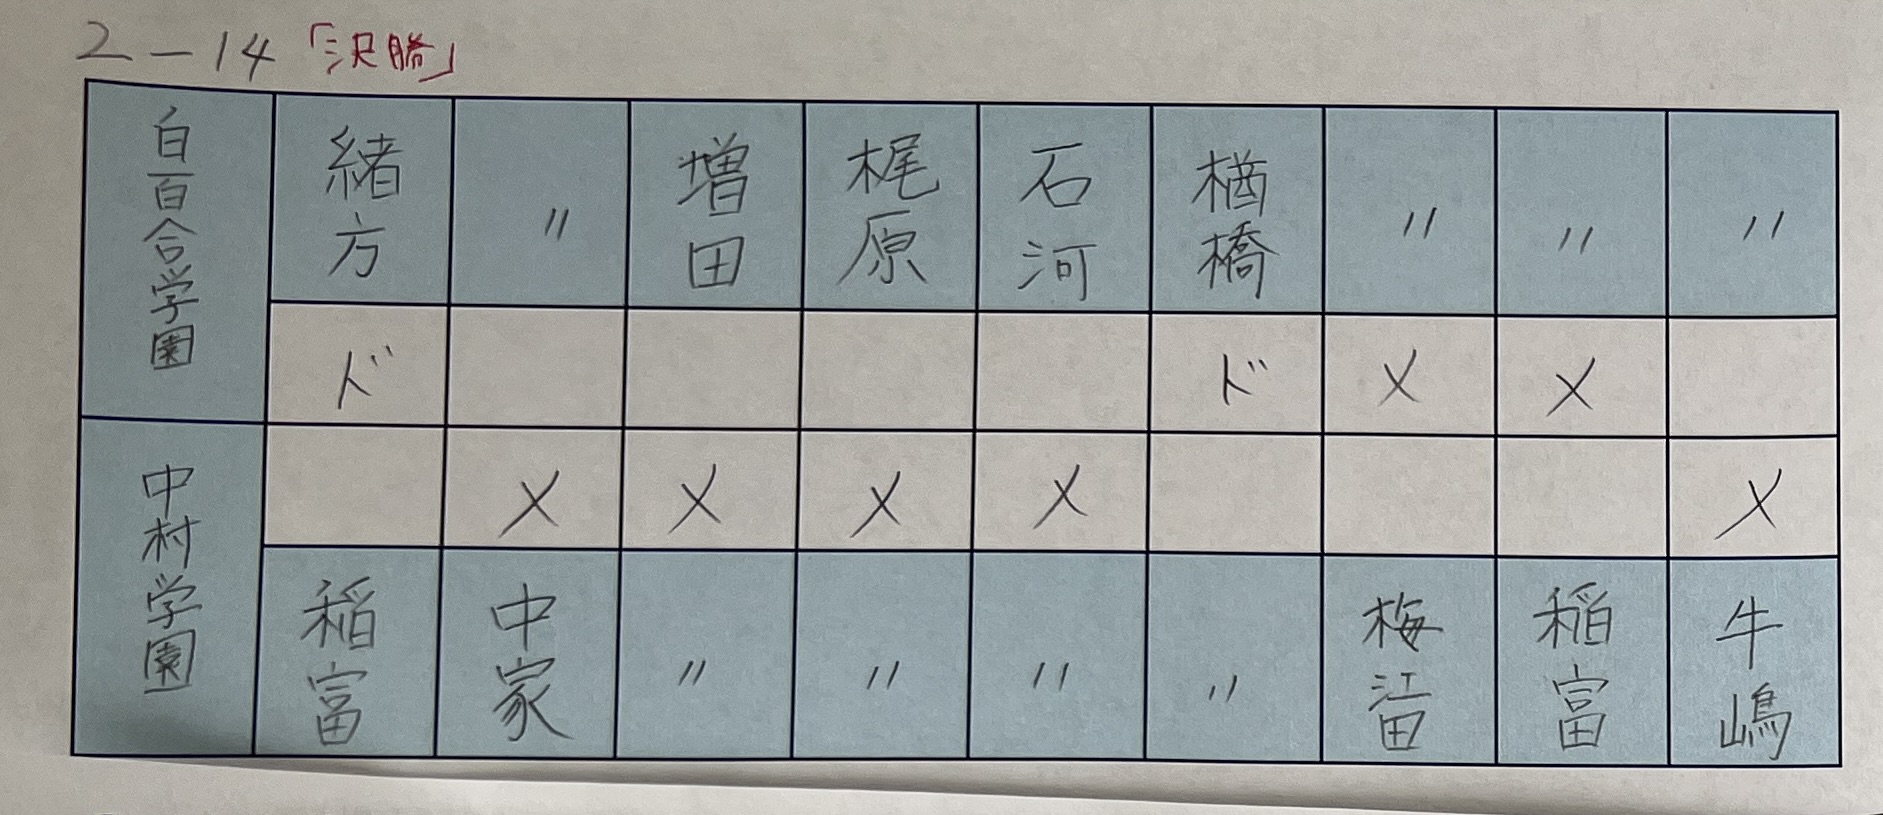 2-14「決勝」
白百合学園 緒方 〃 増田 梶原 石河 楢橋 〃 〃 〃
ド ド メ メ
メ メ メ メ メ
中村学園 稲富 中家 〃 〃 〃 〃 梅田 稲富 牛嶋